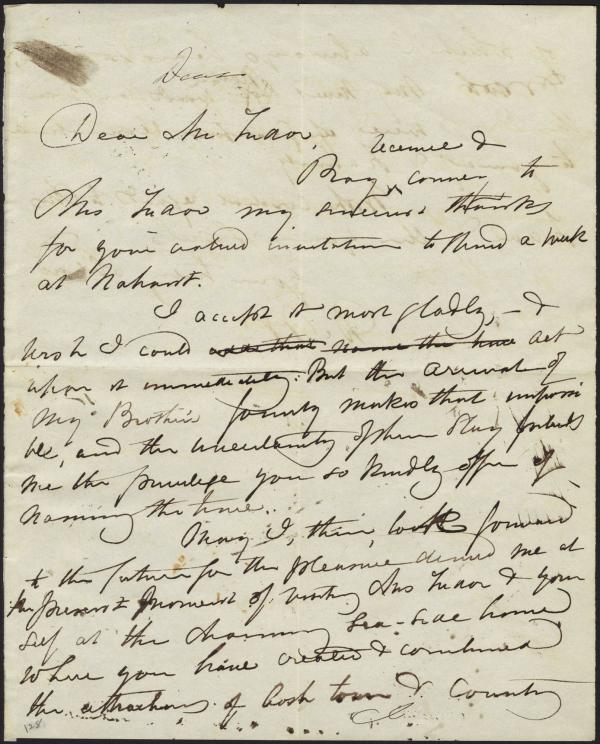 Dear
Dear Mr Tudor,
receive &
Pray convey to
Mrs Tudor my sincere thanks
for your united invitation to spend a week
at Nahant.
I accept it most gladly, - &
wish I could add that name the time act
upon it immediately. But the arrival of
my Brother's family makes that impossi
ble, and the uncertainty of their stay forbids
me the privilege you so kindly offer of
naming the time.
May I, then, look forward
to the future for the pleasure denied me at
the present moment of visiting Mrs Tudor & your
self at the charming sea-side home,
where you have created & combined
the attractions of both town & Country
128